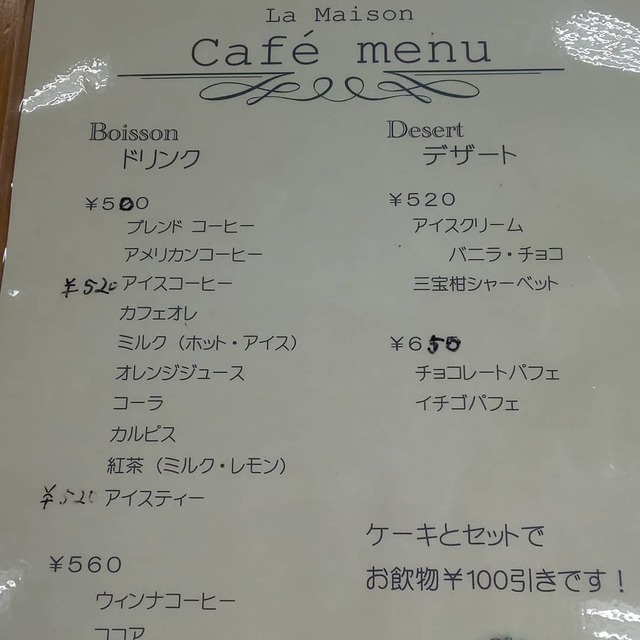 La Maison
Café menu
Boisson
ドリンク
¥500
ブレンド コーヒー
アメリカンコーヒー
¥520 アイスコーヒー
カフェオレ
ミルク（ホット・アイス）
オレンジジュース
コーラ
カルピス
紅茶（ミルク・レモン）
¥520 アイスティー
¥560
ウィンナコーヒー
ココア
Desert
デザート
¥520
アイスクリーム
バニラ・チョコ
三宝柑シャーベット
¥650
チョコレートパフェ
イチゴパフェ
ケーキとセットで
お飲物¥100引きです！